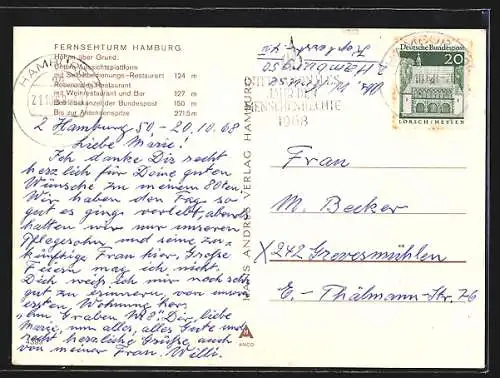 FERNSEHTURM HAMBURG
Höhen über Grund:
Untere Aussichtsplattform
mit Selbstbedienungs-Restaurant 124 m
Rotierendes Restaurant
mit Weinrestaurant und Bar 127 m
Betriebskanzel der Bundespost 150 m
Bis zur Antennenspitze 271,5 m
2 Hamburg 50, - 20.10.68
Liebe Marie!
Ich danke Dir recht
herzlich für Deine guten
Wünsche zu meinem 80ten.
Wir haben den Tag so
gut es ging verlebt, abends
hatten wir nur unseren
Pflegesohn und seine zu-
künftige Frau hier. Große
Feiern mag ich nicht.
Dich weiß ich nur noch sehr
gut zu erinnern von unserer
ersten Wohnung her,
"Am Graben No 8". Dir, liebe
Marie, nun alles, alles Gute und
recht herzliche Grüße, auch
von meiner Frau. Willi.
HANS ANDRES VERLAG HAMBURG
ANCO
HAMBURG
1968
Deutsche Bundespost
20
LORSCH/HESSEN
2 Hamburg 50
Frau
M. Becker
242 Grevesmühlen
E.-Thälmann-Str. 76